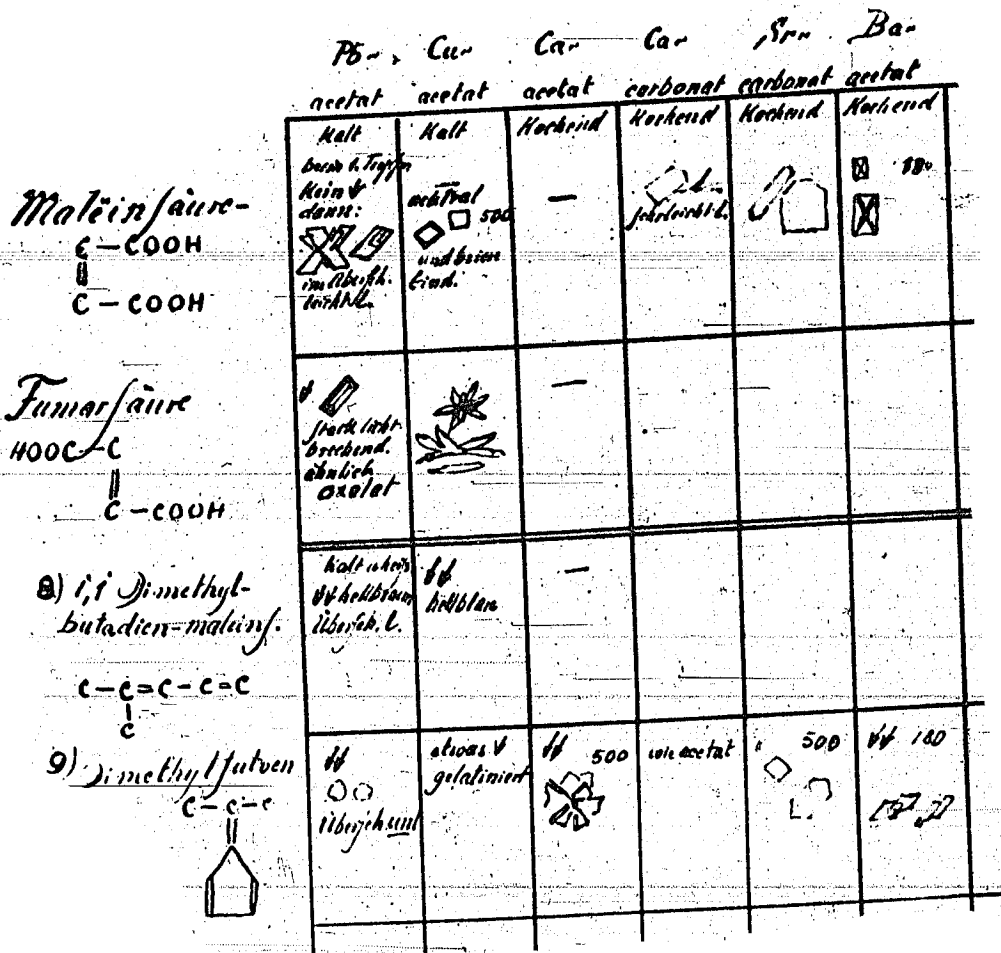 Pb- Cu- Ca- Ca- Sr- Ba-
acetat acetat acetat carbonat carbonat acetat
Kalt Kalt Kochend Kochend Kochend Kochend
Maleinsäure-
C-COOH
||
C-COOH
Kein ↓
dann:
im Übersch.
leicht l.
neutral
500
—
sehr leicht l.
180
Fumarsäure
HOOC-C
||
C-COOH
↓
stark licht-
brechend.
ähnlich
oxalat
—
8) 1,1 Dimethyl-
butadien-maleins.
C-C=C-C=C
|
C
↓↓ hellbraun
Übersch. l.
↓↓
hellblau
—
9) Dimethylfulven
C-C-C
||
↓↓
Übersch. unl
etwas ↓
gelatiniert
↓↓ 500
wie acetat
" 500
↓↓ 180